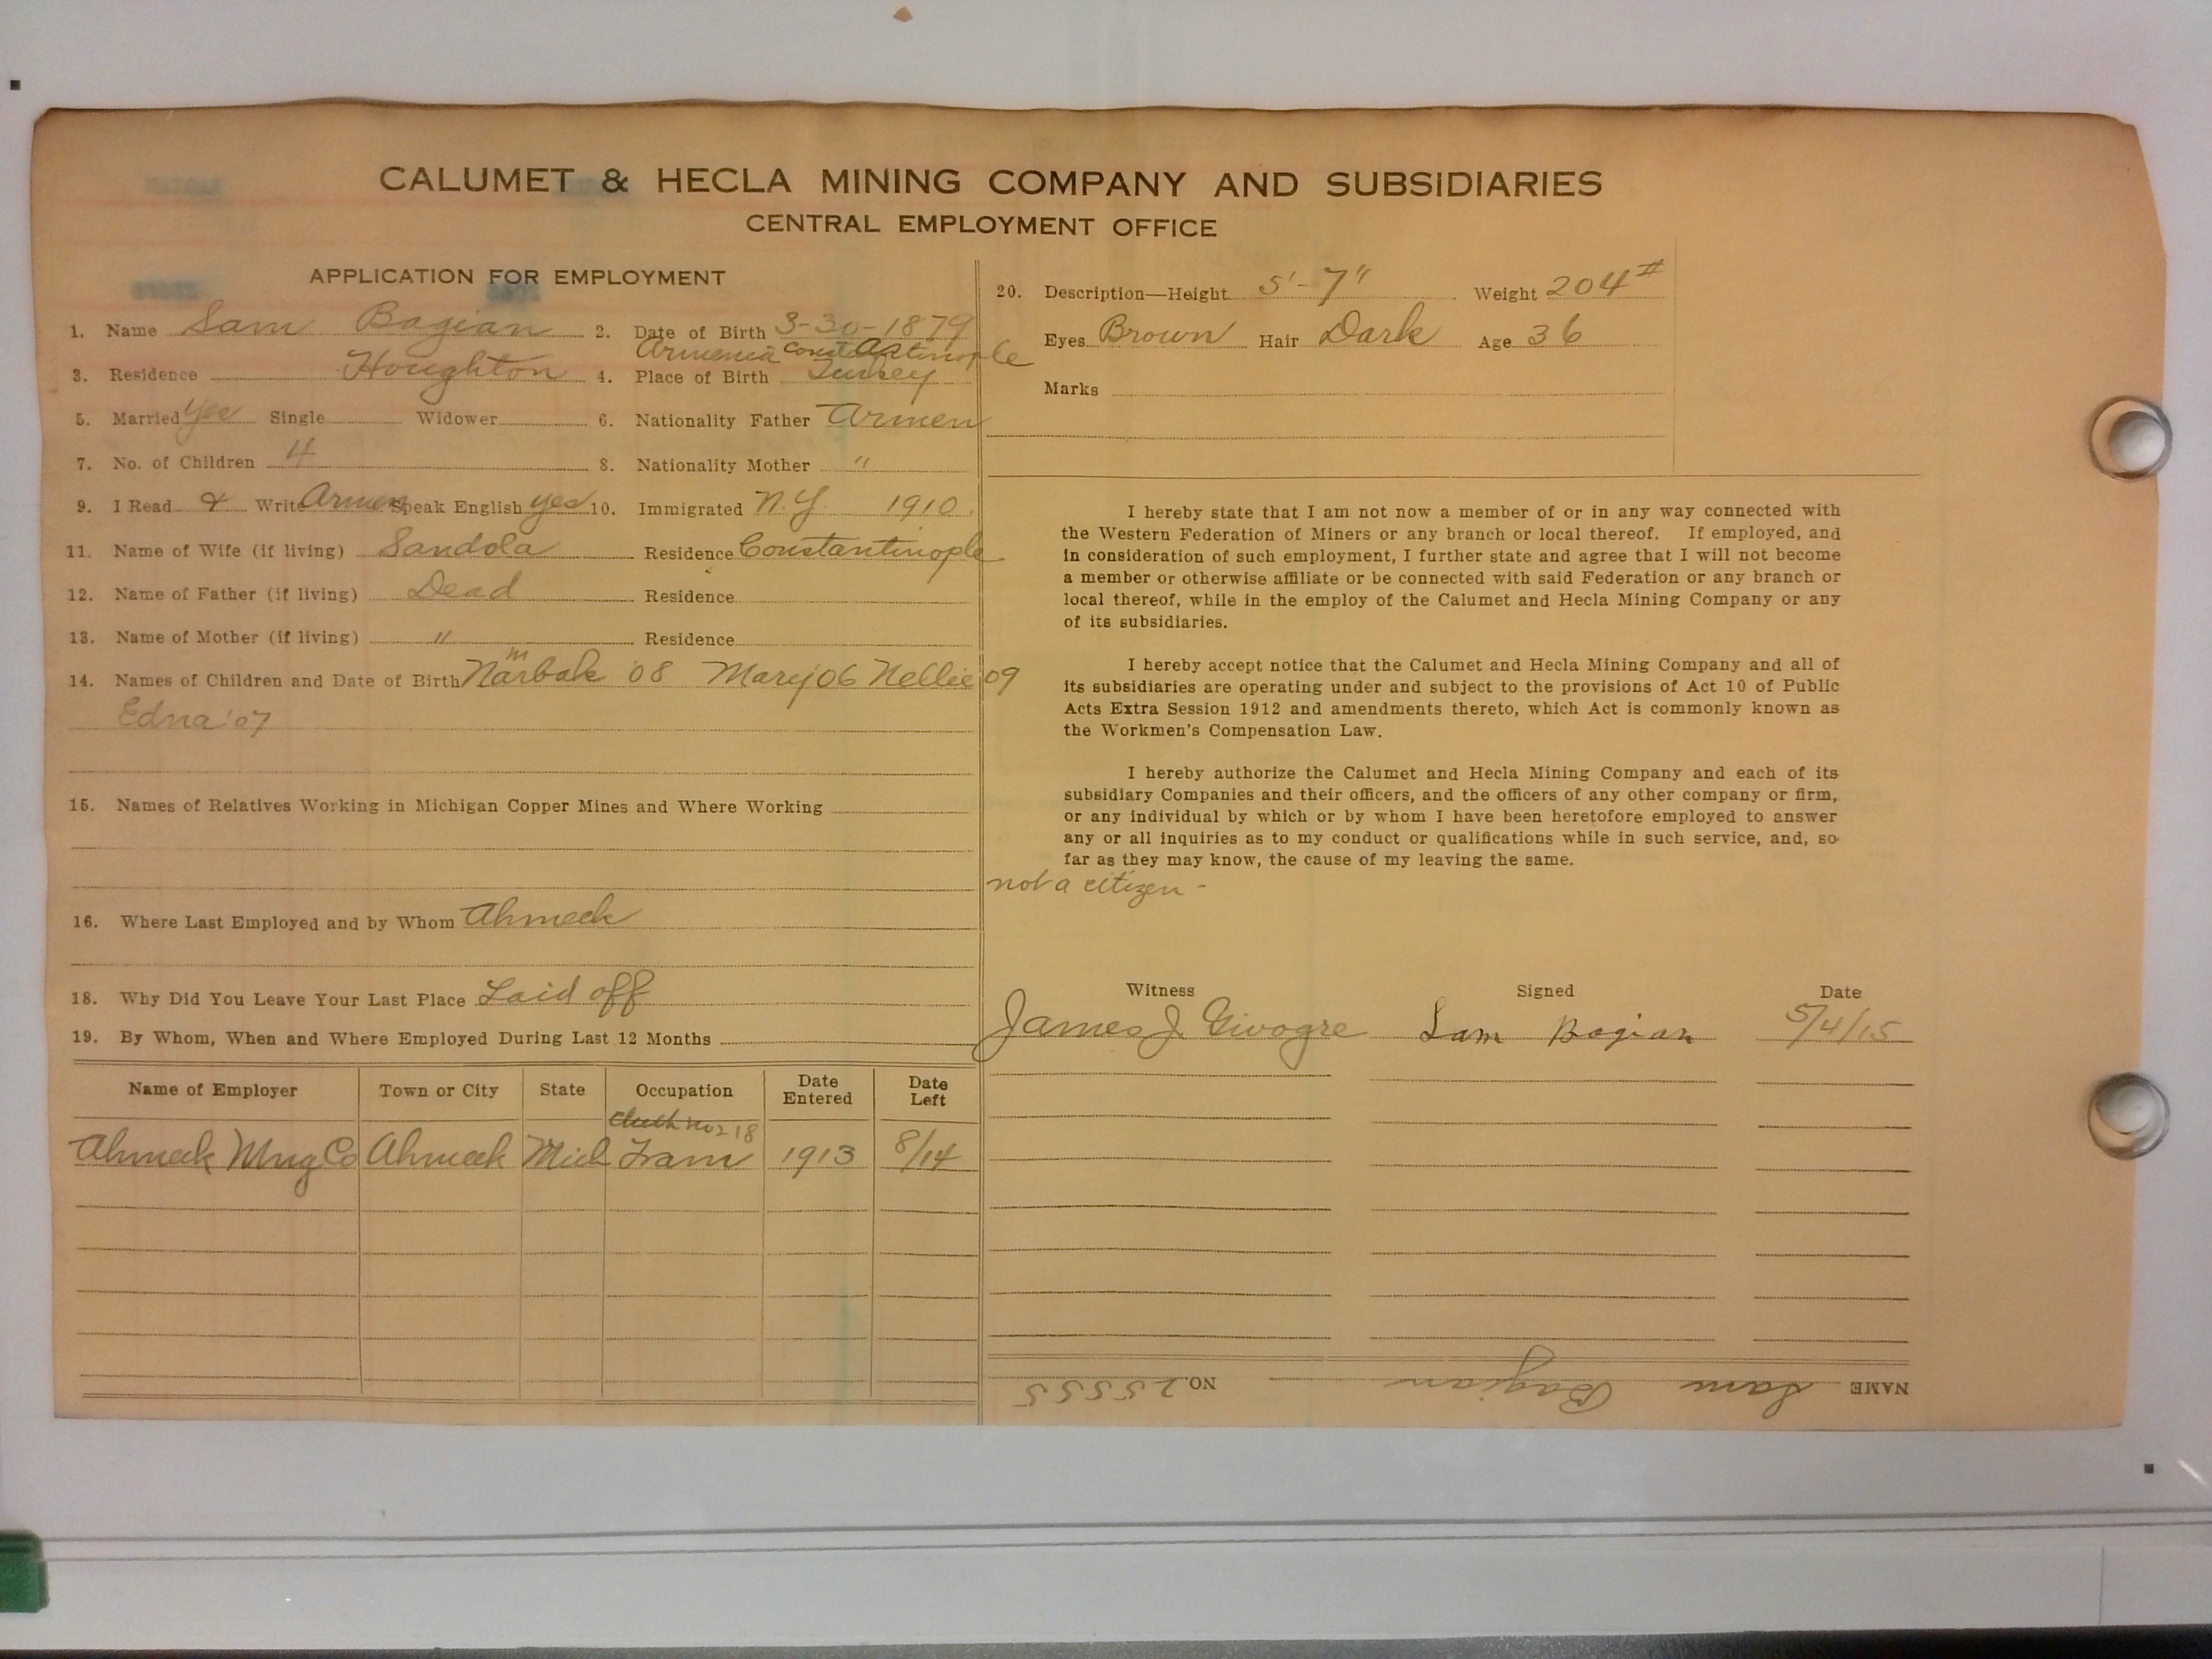 CALUMET & HECLA MINING COMPANY AND SUBSIDIARIES
CENTRAL EMPLOYMENT OFFICE
APPLICATION FOR EMPLOYMENT
1. Name Sam Bagian 2. Date of Birth 3-30-1879
Armenia Constantinople
3. Residence Houghton 4. Place of Birth Turkey
5. Married yes Single Widower 6. Nationality Father Armen
7. No. of Children 4 8. Nationality Mother "
9. I Read & Write Armen Speak English yes 10. Immigrated N.Y. 1910
11. Name of Wife (if living) Sandola Residence Constantinople
12. Name of Father (if living) Dead Residence
13. Name of Mother (if living) " Residence
m
14. Names of Children and Date of Birth Narbak '08 Mary '06 Nellie '09
Edna '07
15. Names of Relatives Working in Michigan Copper Mines and Where Working
16. Where Last Employed and by Whom Ahmeek
18. Why Did You Leave Your Last Place Laid off
19. By Whom, When and Where Employed During Last 12 Months
Name of Employer Town or City State Occupation Date Entered Date Left
No 218
Ahmeek Mng Co Ahmeek Mich Tram 1913 8/14
20. Description—Height 5'-7" Weight 204#
Eyes Brown Hair Dark Age 36
Marks
I hereby state that I am not now a member of or in any way connected with
the Western Federation of Miners or any branch or local thereof. If employed, and
in consideration of such employment, I further state and agree that I will not become
a member or otherwise affiliate or be connected with said Federation or any branch or
local thereof, while in the employ of the Calumet and Hecla Mining Company or any
of its subsidiaries.
I hereby accept notice that the Calumet and Hecla Mining Company and all of
its subsidiaries are operating under and subject to the provisions of Act 10 of Public
Acts Extra Session 1912 and amendments thereto, which Act is commonly known as
the Workmen's Compensation Law.
I hereby authorize the Calumet and Hecla Mining Company and each of its
subsidiary Companies and their officers, and the officers of any other company or firm,
or any individual by which or by whom I have been heretofore employed to answer
any or all inquiries as to my conduct or qualifications while in such service, and, so
far as they may know, the cause of my leaving the same.
not a citizen -
Witness Signed Date
James J. Givogre Sam Bagian 5/4/15
NAME Sam Bagian NO. 25555